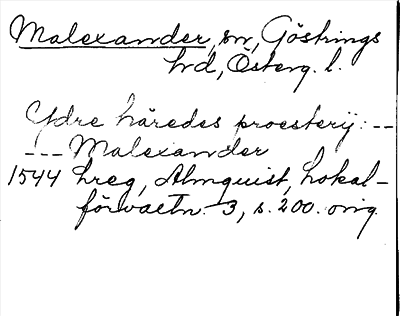 Malexander, sn, Göstrings
hrd, Österg. l.
Ydre häredes proesterij: --
--- Malexander
1544 hreg, Almquist, Lokal-
förvaltn. 3, s. 200. orig.